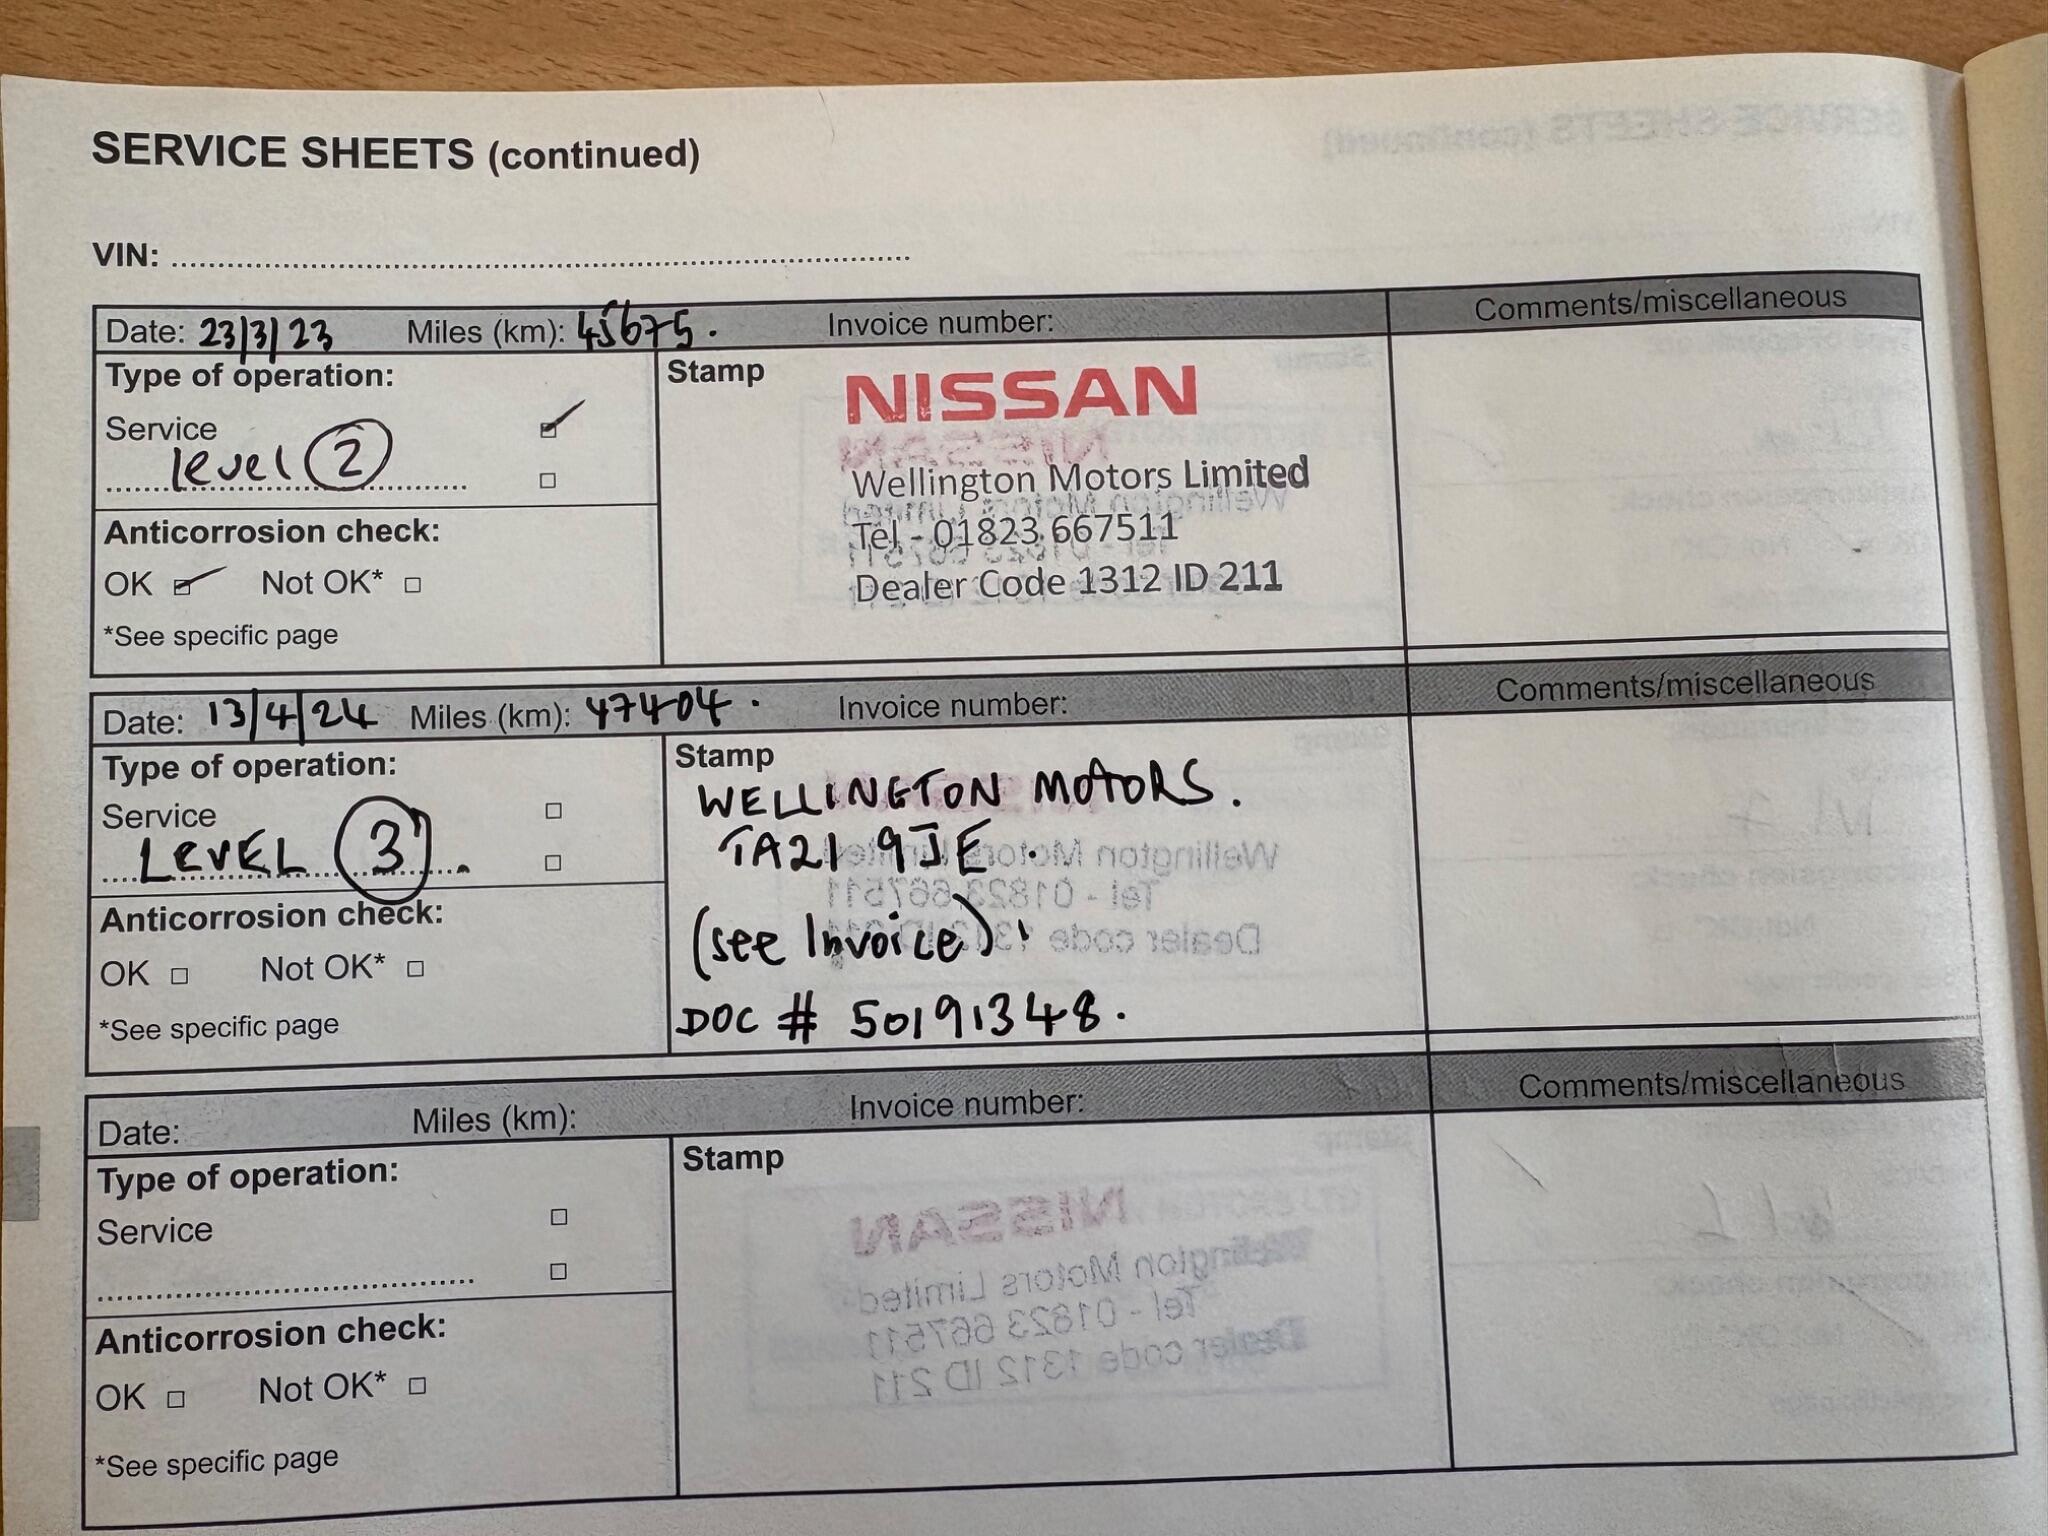 SERVICE SHEETS (continued)
VIN:
Date: 23/3/23 Miles (km): 45675. Invoice number: Comments/miscellaneous
Type of operation:
Service
level 2
Anticorrosion check:
OK Not OK*
*See specific page
Stamp
NISSAN
Wellington Motors Limited
Tel - 01823 667511
Dealer Code 1312 ID 211
Date: 13/4/24 Miles (km): 47404. Invoice number: Comments/miscellaneous
Type of operation:
Service
LEVEL 3.
Anticorrosion check:
OK Not OK*
*See specific page
Stamp
WELLINGTON MOTORS.
TA21 9JE.
(see Invoice)
DOC # 50191348.
Date: Miles (km): Invoice number: Comments/miscellaneous
Type of operation:
Service
Anticorrosion check:
OK Not OK*
*See specific page
Stamp